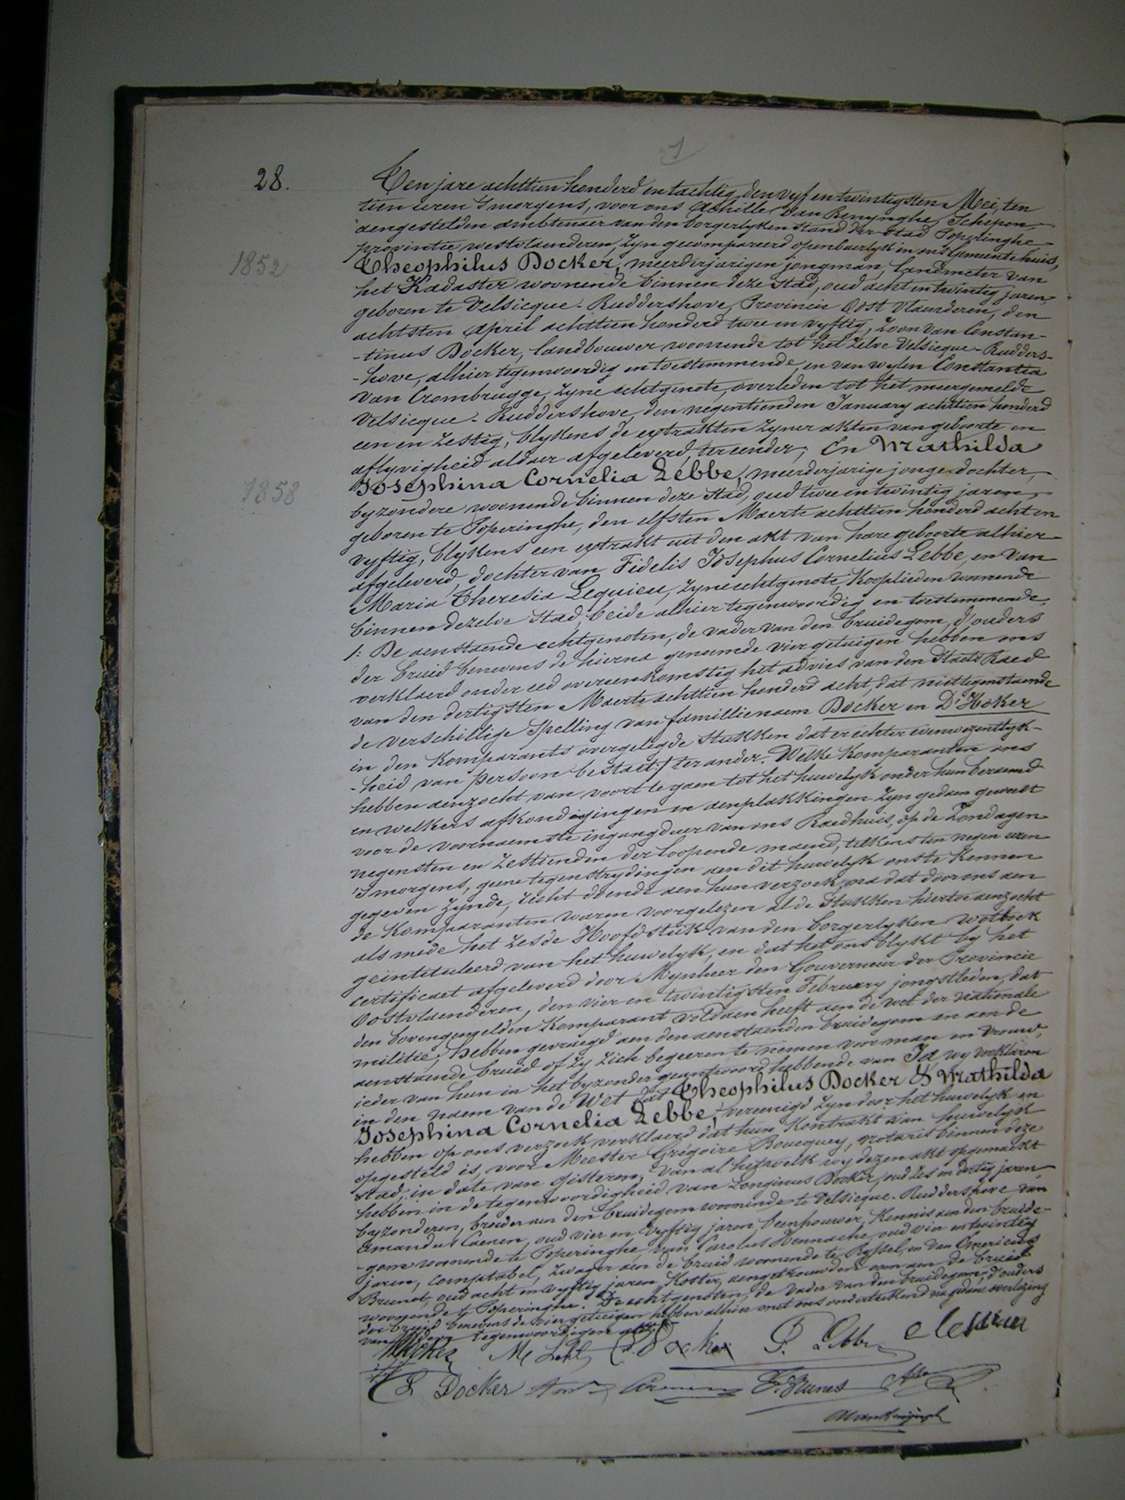 1
28.
Ten jare achttien honderd en tachtig, den vyf en twintigsten Mei, ten
tien uren 's morgens, voor ons Achille Van Renynghe, Schepen,
aengestelden ambtenaer van den borgerlyken stand der stad Poperinghe
provintie westvlaenderen, zyn gecompareerd openbaerlyk in ons Gemeentehuis,
1852
Theophilus Docker, meerderjarigen jongman, landmeter van
het Kadaster woonende binnen deze stad, oud acht en twintig jaren
geboren te Velsicque-Ruddershove, Provincie Oost Vlaenderen, den
achtsten April achttien honderd twee en vyftig, zoon van Constan-
-tinus Docker, landbouwer woonende tot het zelve Velsicque-Rudders-
-hove, alhier tegenwoordig en toestemmende, en van wylen Constantia
Van Crombrugge, zyne echtgenote, overleden tot het meergemelde
Velsicque-Ruddershove, den negentienden January achttien honderd
een en zestig, blykens de extrakten zyner akten van geboorte en
aflyvigheid aldaer afgeleverd, ter eender, En Mathilda
1858
Josephina Cornelia Lebbe, meerderjarige jongedochter,
byzondere woonende binnen deze stad, oud twee en twintig jaren,
geboren te Poperinghe, den elfsten Maerte achttien honderd acht en
vyftig, blykens een extrakt uit den akt van hare geboorte alhier
afgeleverd, dochter van Fidelis Josephus Cornelius Lebbe, en van
Maria Theresia Lequieu, zyne echtgenote Kooplieden woonende
binnen dezelve stad, beide alhier tegenwoordig en toestemmende.
/: De aenstaende echtgenoten, de vader van den bruidegom, d'ouders
der bruid benevens de hierna genoemde vier getuigen hebben ons
verklaerd onder eed overeenkomstig het advies van den Staets Raed
van den dertigsten Maerte achttien honderd acht, dat niettegenstaende
de verschillige spelling van famillienaem Docker en D'Hoker
in den Komparants overgelegde stukken dat er echter eenwezentlyk-
-heid van persoon bestaet / ter ander. Welke Komparanten ons
hebben aenzocht van voort te gaen tot het huwelyk onder hun beraemd
en welkers afkondigingen en aenplakkingen zyn gedaen geweest
voor de voornaemste ingangdeur van ons Raedhuis, op de Zondagen
negensten en zestienden der loopende maend, telkens ten negen uren
's morgens, geene tegenstrydingen aen dit huwelyk ons te kennen
gegeven zynde, recht doende aen hun verzoek, na dat door ons aen
de Komparanten waren voorgelezen al de stukken hiertoe aenzocht
als mede het zesde Hoofdstuk van den borgerlyken wetboek
geintituleerd van het huwelyk, en dat het ons blykt by het
certificaet afgeleverd door Mynheer den Gouverneur der Provincie
Oostvlaenderen, den vier en twintigsten February jongstleden, dat
den bovengemelden Komparant voldaen heeft aen de wet der nationale
militie; Hebben gevraegd aen den aenstaenden bruidegom en aen de
aenstaende bruid of zy zich begeeren te nemen voor man en vrouw,
ieder van hun in het byzonder geantwoord hebbende van Ja, wy verklaren
in den naem van de Wet dat Theophilus Docker & Mathilda
Josephina Cornelia Lebbe, vereenigd zyn door het huwelyk en
hebben op ons verzoek verklaerd dat hun Kontrakt van huwelyk
opgesteld is, voor Meester Grégoire Boucquey, notaris binnen deze
stad, in date van gisteren; van al hetwelk wy dezen akt opgemaekt
hebben in de tegenwoordigheid van Longinus Docker, oud zes en dertig jaren
byzonderen, broeder aen den bruidegom woonende te Velsicque-Ruddershove van
Amandus Coenen, oud vier en vyftig jaren, steenhouwer, Kennis aen den bruide-
-gom woonende te Poperinghe, van Carolus Hennache, oud een en twintig
jaren, comptabel, zwager aen de bruid woonende te Ryssel, en van Americus
Brunet, oud acht en vyftig jaren Koster, aengetrouwden oom aen de bruid
woonende te Poperinghe. De echtgenoten, de vader van den bruidegom, d'ouders
der bruid benevens de vier getuigen hebben alhier met ons onderteekend na gedane voorlezing
van dezen tegenwoordigen akt
M Lebbe Docker F. Lebbe
L Docker